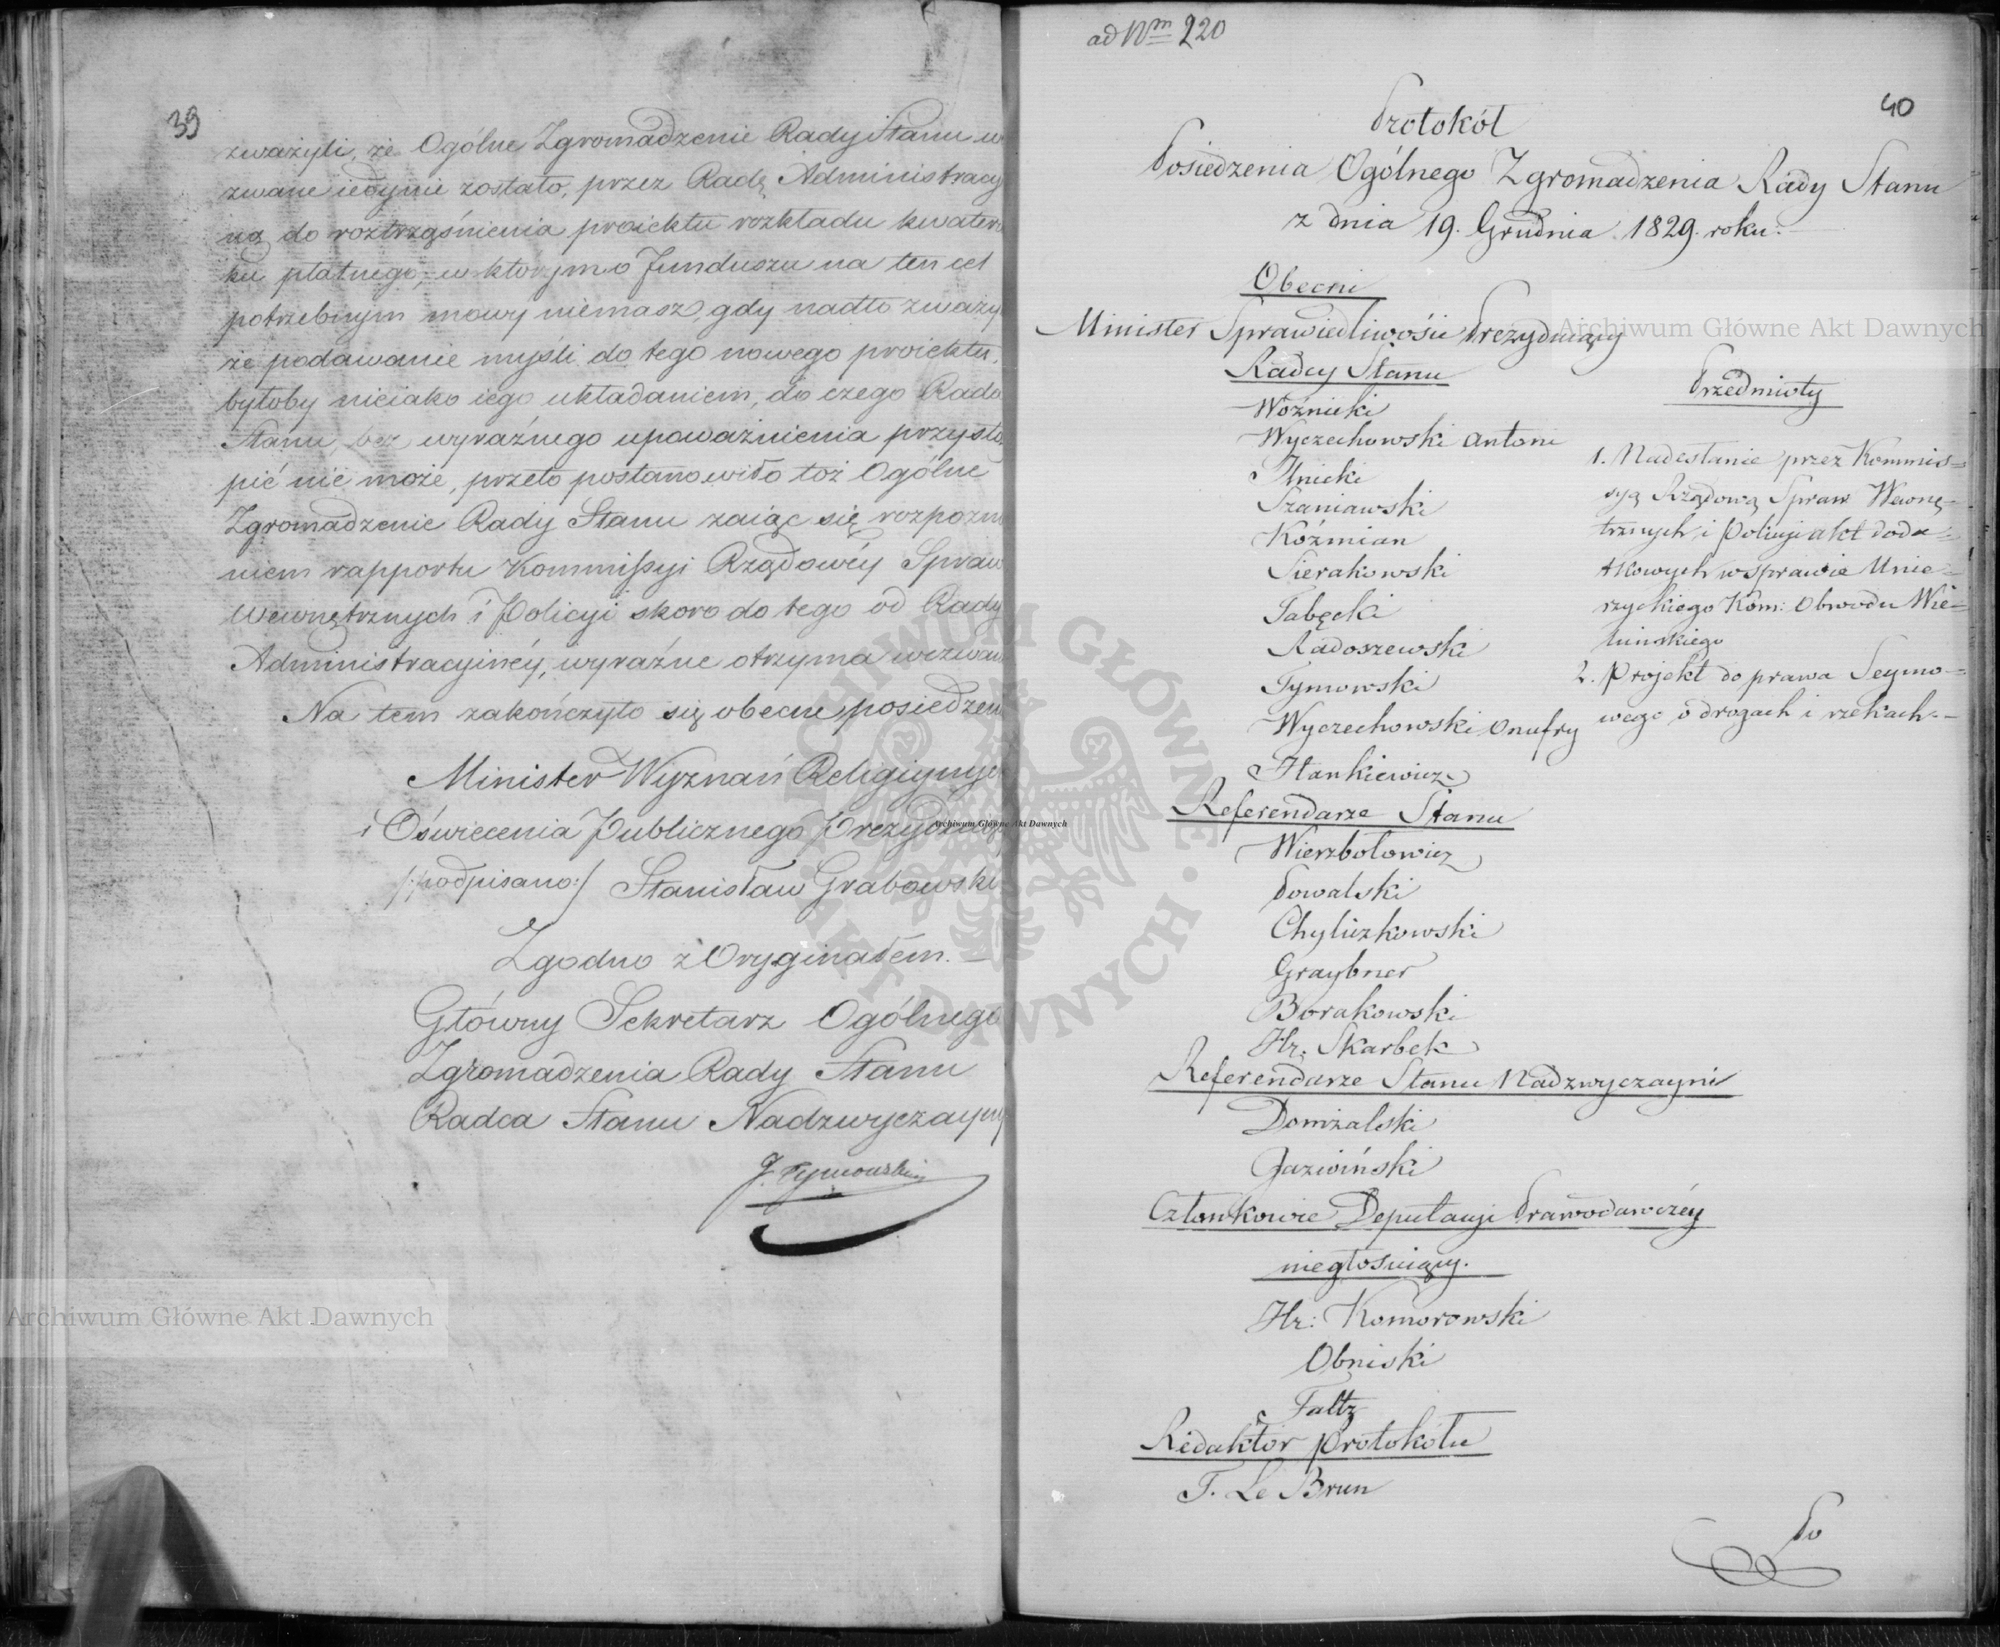 39
zważyli, że Ogólne Zgromadzenie Rady Stanu w
zwane iedynie zostało, przez Radę Administracy
ną do roztrząśnienia proiektu rozkładu kwater
ku płatnego, w którym o funduszu na ten cel
potrzebnym mowy niemasz, gdy nadto zważy
że podawanie myśli do tego nowego proiektu,
byłoby nieiako iego układaniem, do czego Rada
Stanu, bez wyraźnego upoważnienia przystą
pić nie może, przeto postanowiło toż Ogólne
Zgromadzenie Rady Stanu zaiąć się rozpozna
niem rapportu Kommissyi Rządowéy Spraw
Wewnętrznych i Policyi skoro do tego od Rady
Administracyinéy, wyraźne otrzyma wezwan
Na tem zakończyło się obecne posiedzen
Minister Wyznań Religiynyc
i Oświecenia Publicznego Prezyduią
/:podpisano:/ Stanisław Grabowski
Zgodno z Oryginałem.
Główny Sekretarz Ogólnego
Zgromadzenia Rady Stanu
Radca Stanu Nadzwyczayny
J. Tymowski
ad Nm 220
40
Protokół
Posiedzenia Ogólnego Zgromadzenia Rady Stanu
z dnia 19. Grudnia 1829. roku.
Obecni
Minister Sprawiedliwości Prezyduiący
Radcy Stanu
Woźnicki
Wyczechowski Antoni
Ilnicki
Szaniawski
Koźmian
Sierakowski
Tabęcki
Radoszewski
Tymowski
Wyczechowski Onufry
Hankiewicz
Referendarze Stanu
Wierzbołowicz
Powalski
Chyliczkowski
Graybner
Borakowski
Hr. Skarbek
Referendarze Stanu Nadzwyczayni
Domżalski
Jaziwiński
Członkowie Deputacyi Prawodawczéy
niegłosuiący.
Hr: Komorowski
Obniski
Faltz
Redaktor protokółu
T. Le Brun
Przedmioty
1. Nadesłanie przez Kommis=
syą Rządową Spraw Wewnę=
trznych i Policyi akt doda=
tkowych w sprawie Unie=
rzyckiego Kom: Obwodu Wie=
luńskiego
2. Projekt do prawa Seymo=
wego o drogach i rzekach.
Po
Archiwum Główne Akt Dawnych
Archiwum Główne Akt Dawnych
Archiwum Główne Akt Dawnych
ARCHIWUM GŁÓWNE · AKT DAWNYCH ·